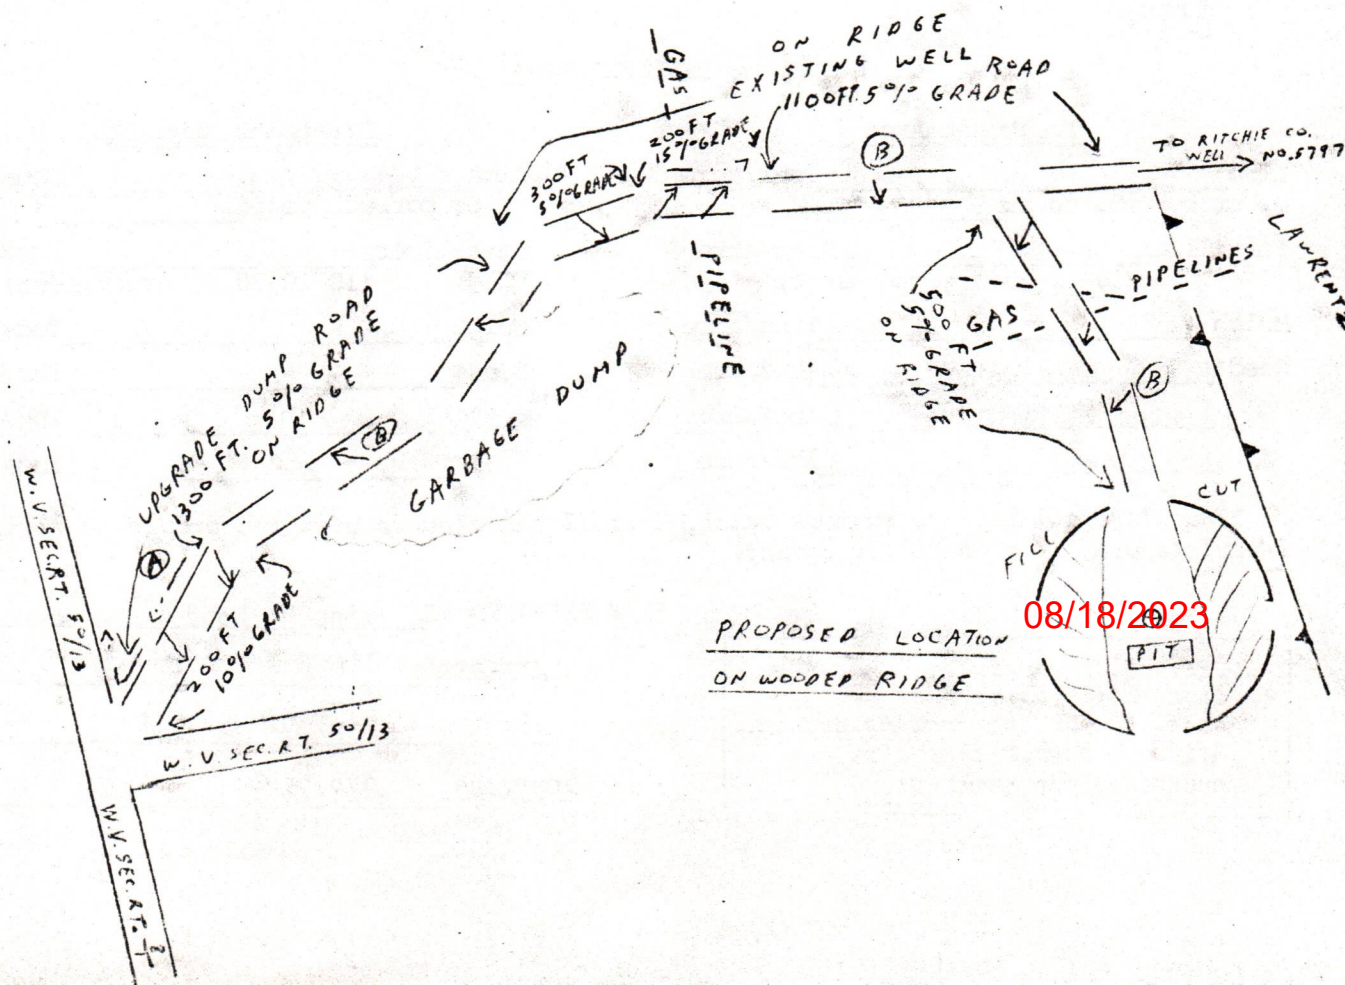 ON RIDGE
EXISTING WELL ROAD
1100FT. 5% GRADE
GAS
PIPELINE
200 FT
15% GRADE
300 FT
5% GRADE
B
TO RITCHIE CO.
WELL NO. 5797
LAWRENTZ
GAS PIPELINES
500 FT
5% GRADE
ON RIDGE
B
UPGRADE DUMP ROAD
1300 FT. 5% GRADE
ON RIDGE
GARBAGE DUMP
A
200 FT
10% GRADE
W.V. SEC. RT. 50/13
W.V. SEC. RT. 50/13
W.V. SEC. RT.
CUT
FILL
08/18/2023
PIT
PROPOSED LOCATION
ON WOODED RIDGE